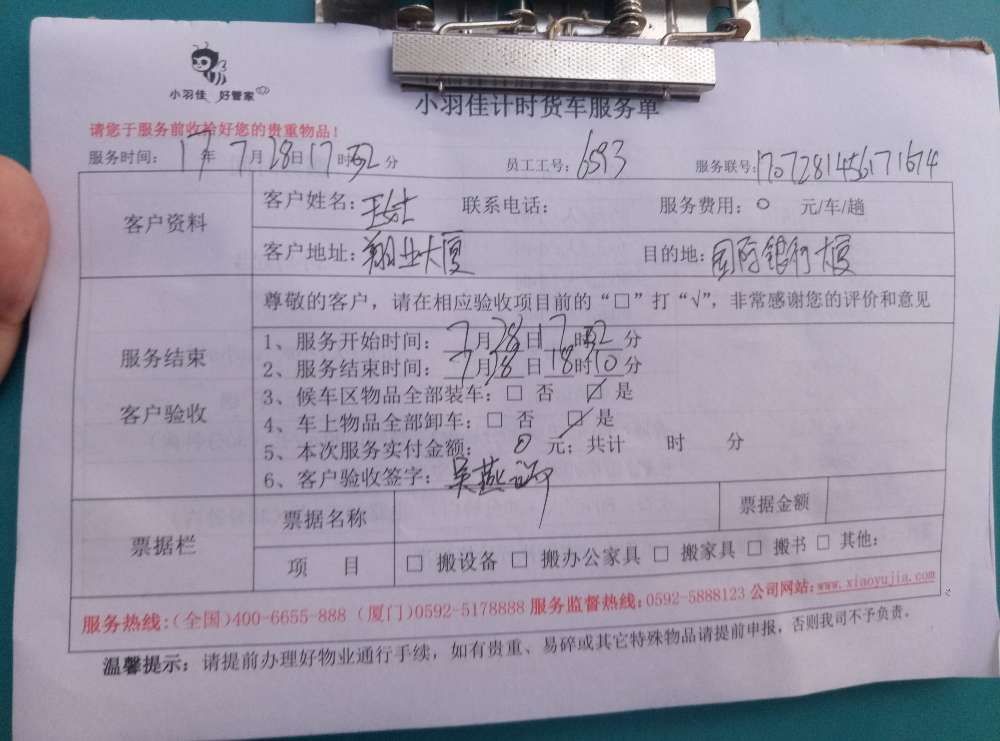 小羽佳 好管家
小羽佳计时货车服务单
请您于服务前收拾好您的贵重物品！
服务时间： 17 年 7月28日17时32分 员工工号：6593 服务联号：1707281456171674
客户资料 客户姓名：王女士 联系电话： 服务费用：0 元/车/趟
客户地址：翔业大厦 目的地：国际银行大厦
尊敬的客户，请在相应验收项目前的“□”打“√”，非常感谢您的评价和意见
服务结束
客户验收
1、服务开始时间：7月28日17时32分
2、服务结束时间：7月28日18时10分
3、候车区物品全部装车：□ 否 ☑ 是
4、车上物品全部卸车：□ 否 ☑ 是
5、本次服务实付金额： 0 元；共计 时 分
6、客户验收签字：吴燕
票据栏 票据名称 票据金额
项 目 □ 搬设备 □ 搬办公家具 □ 搬家具 □ 搬书 □ 其他：
服务热线：（全国）400-6655-888（厦门）0592-5178888 服务监督热线：0592-5888123 公司网站：www.xiaoyujia.com
温馨提示：请提前办理好物业通行手续，如有贵重、易碎或其它特殊物品请提前申报，否则我司不予负责。